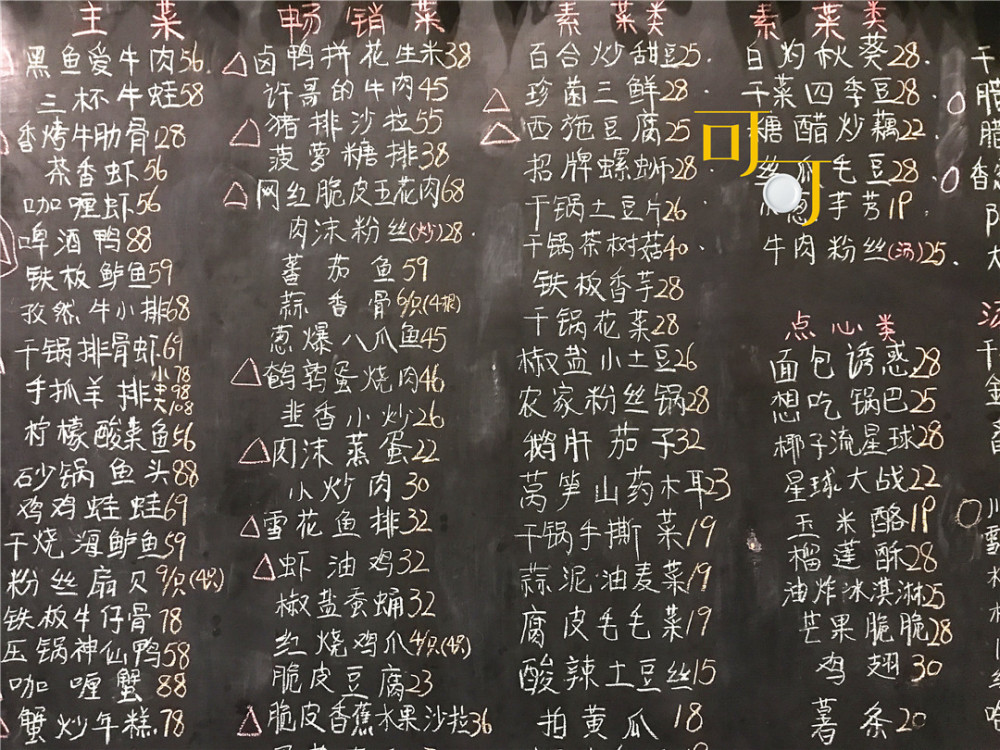 主菜
黑鱼爱牛肉56
三杯牛蛙58
香烤牛肋骨128
茶香虾56
咖喱虾56
啤酒鸭88
铁板鲈鱼59
孜然牛小排68
干锅排骨虾69
手抓羊排小78中98大108
柠檬酸菜鱼56
砂锅鱼头88
鸡鸡蛙蛙69
干烧海鲈鱼59
粉丝扇贝9/只(4只)
铁板牛仔骨78
压锅神仙鸭58
咖喱蟹88
蟹炒年糕.78
畅销菜
卤鸭拼花生米38
许哥的牛肉45
猪排沙拉55
菠萝糖排38
网红脆皮五花肉68
肉沫粉丝(炒)28
蕃茄鱼59
蒜香骨6/只(4根)
葱爆八爪鱼45
鹌鹑蛋烧肉46
韭香小炒26
肉沫蒸蛋22
小炒肉30
雪花鱼排32
虾油鸡32
椒盐蚕蛹32
红烧鸡爪4/只(4只)
脆皮豆腐23
脆皮香蕉水果沙拉36
素菜类
百合炒甜豆25
珍菌三鲜28
西施豆腐25
招牌螺蛳28
干锅土豆片26
干锅茶树菇40
铁板香芋28
干锅花菜28
椒盐小土豆26
农家粉丝锅28
鹅肝茄子32
莴笋山药木耳23
干锅手撕菜19
蒜泥油麦菜19
腐皮毛毛菜19
酸辣土豆丝15
拍黄瓜18
素菜类
白灼秋葵28
干菜四季豆28
糖醋炒藕22
丝瓜毛豆28
葱芋艿19
牛肉粉丝(汤)25
可可
点心类
面包诱惑28
想吃锅巴25
椰子流星球28
星球大战22
玉米酪19
榴莲酥28
油炸冰淇淋25
芒果脆脆28
鸡翅30
薯条20